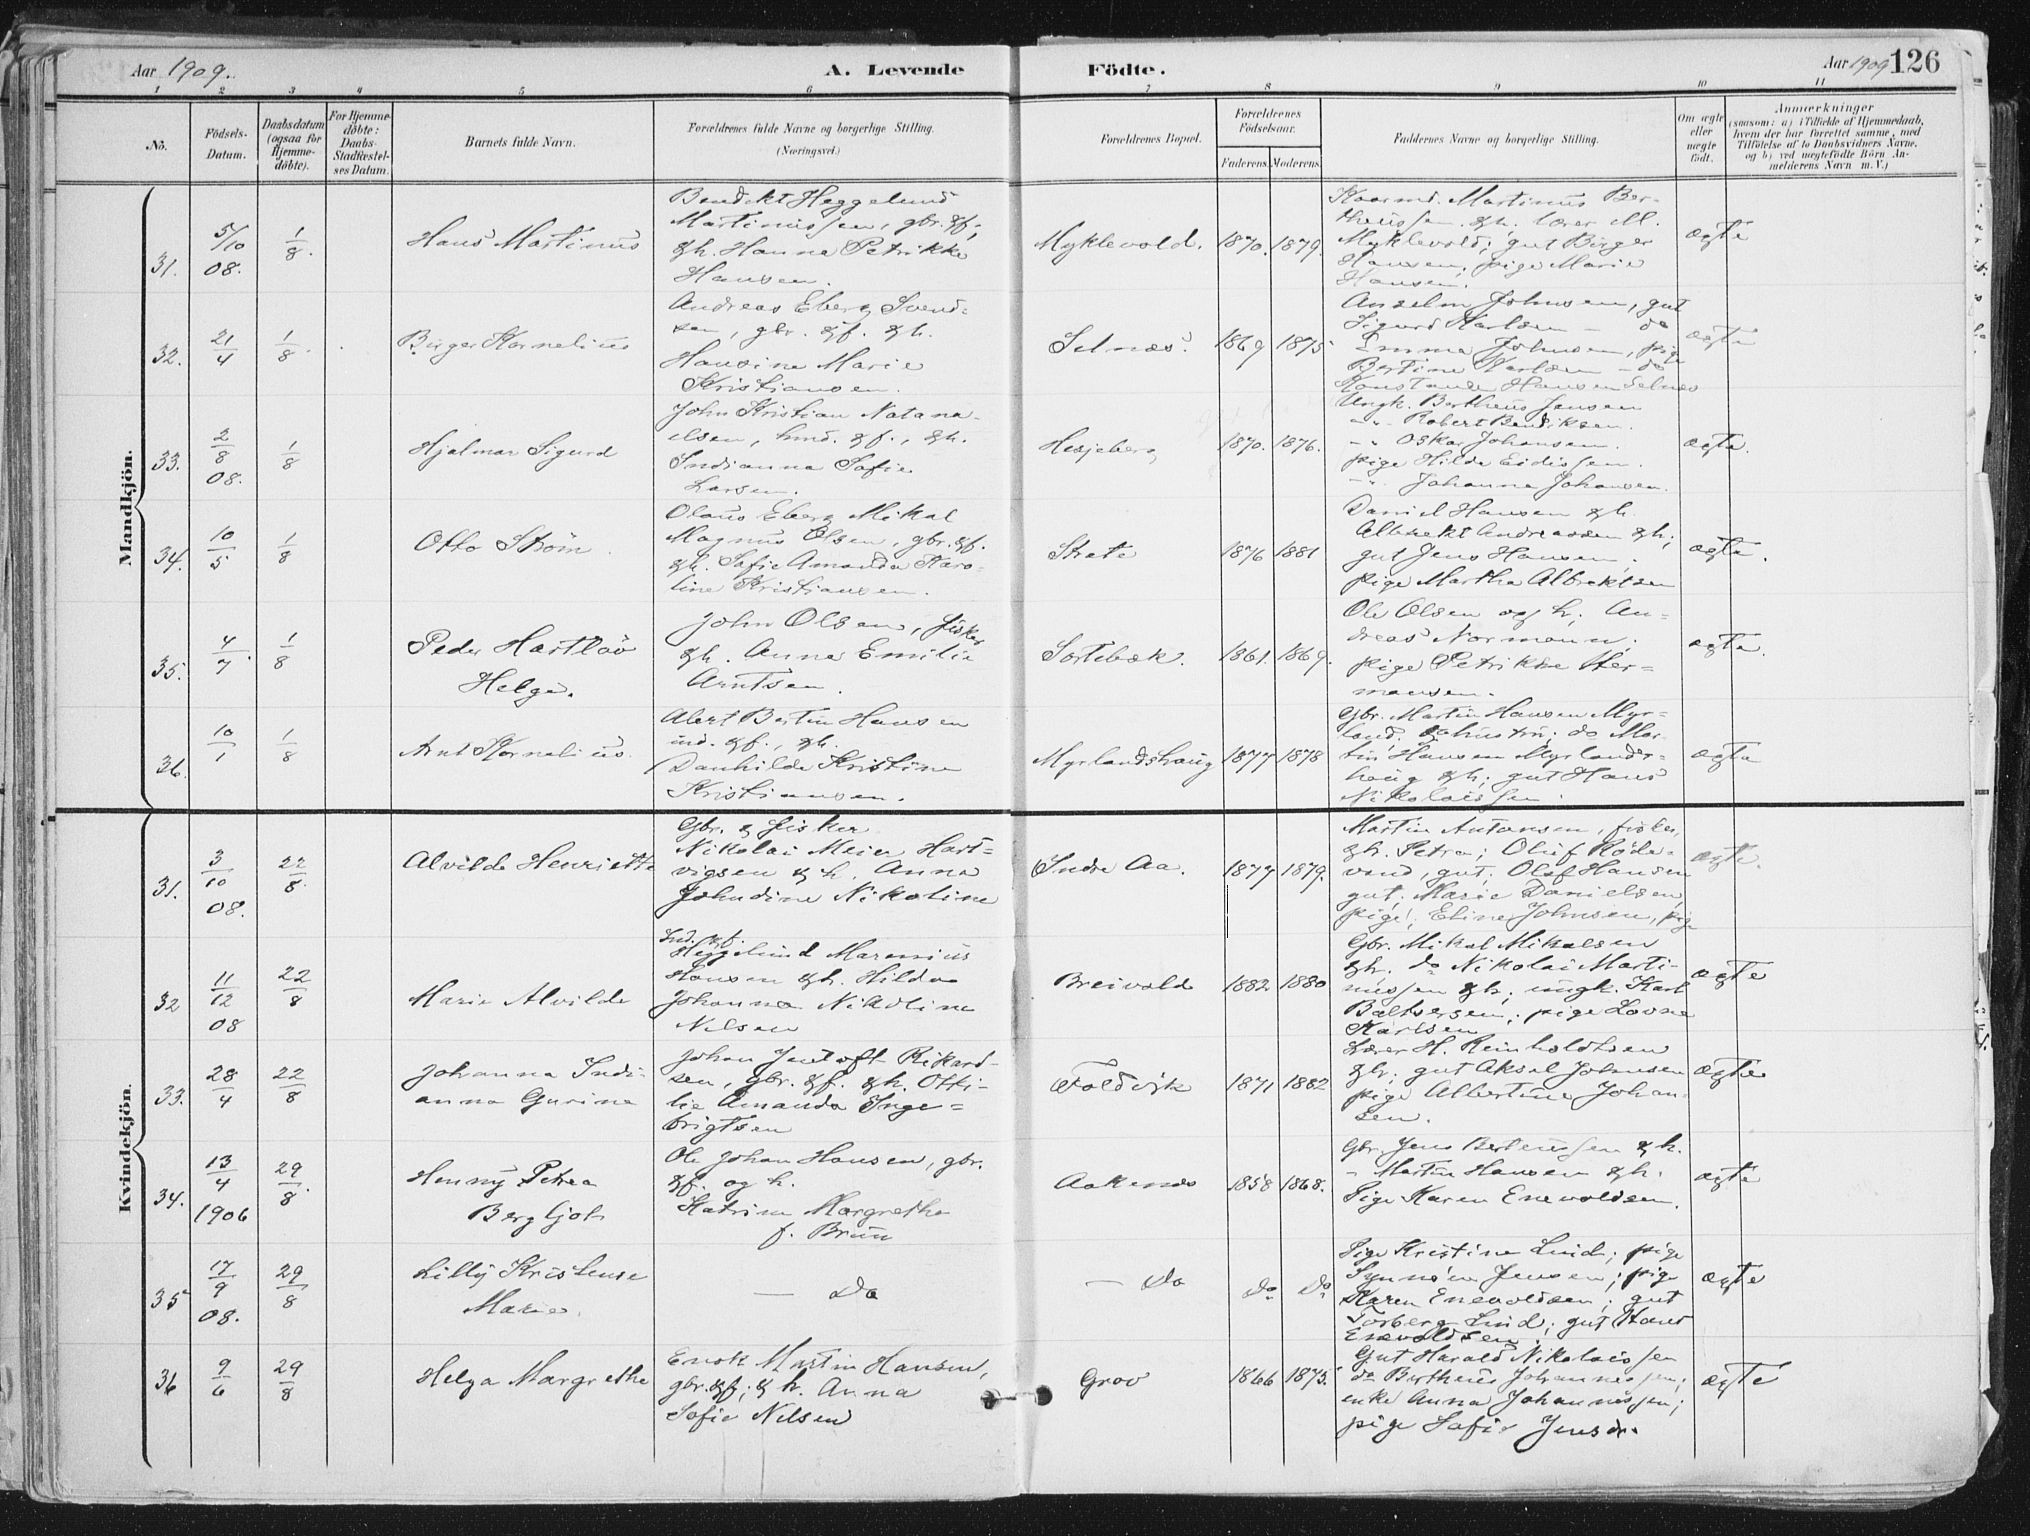 Aar 1909. A. Levende Födte. Aar 1909 126
1 2 3 4 5 6 7 8 9 10 11
No. Födsels-Datum. Daabsdatum (ogsaa for Hjemmedöbte). For Hjemmedöbte: Daabs-Stadfæstelses Datum. Barnets fulde Navn. Forældrenes fulde Navne og borgerlige Stilling. (Næringsvei.) Forældrenes Bopæl. Forældrenes Födselsaar. Faderens. Moderens. Faddernes Navne og borgerlige Stilling. Om ægte eller uægte födt. Anmærkninger (saasom: a) i Tilfælde af Hjemmedaab, hvem der har forrettet samme, med Tilföielse af to Daabsvidners Navne, og b) ved uegtefödte Börn Anmelderens Navn m. V.)
Mandkjön.
31. 5/10 08. 1/8. Hans Martinus
Bendikt Heggelund
Martinussen, gbr. &f;
&h. Hanna Petrikke
Hansen.
Myklevold. 1870. 1879.
Kaarmd. Martinus Ber-
theussen &h. lærer M.
Myklevold; gut Birger
Hansen; pige Marie
Hansen.
ægte
32. 21/4 1/8. Birger Kornelius
Andreas Eberg Svend-
sen, gbr. &f. &h.
Hansine Marie
Kristiansen.
Selnæs. 1869 1875
Anselm Johnsen, gut
Sigurd Karlsen — do
Emma Johnsen, pige
Bertine Karlsen — do
Konstanse Hansen Selnæs
ægte
33. 2/8 08. 1/8 Hjalmar Sigurd
John Kristian Natana-
elsen, hmd. &f., &h.
Indianna Sofie
Larsen.
Hesjeberg 1870. 1876.
Ungk. Bertheus Jensen
-"- Robert Bendiksen.
-"- Oskar Johansen.
pige Hilda Eidissen.
-"- Johanna Johansen.
ægte.
34. 10/5 1/8 Otto Strøm.
Olaus Eberg Mikal
Magnus Olsen, gbr. &f.
&h. Sofie Amanda Karo-
line Kristiansen.
Strete 1876 1881
Daniel Hansen &h.
Albrekt Andreassen &h;
gut Jens Hansen.
pige Martha Albrektsen
ægte.
35. 4/7. 1/8 Peder Hartløv
Helge.
John Olsen, fisker
&h. Anna Emilie
Arntsen.
Sortebæk. 1861. 1869.
Ole Olsen og h; An-
dreas Normann;
pige Petrikke Her-
mansen.
ægte.
36. 10/1 1/8 Arnt Kornelius.
Albert Bertin Hansen
ind. &f., &h.
Danhilde Kristine
Kristiansen.
Myrlandshaug 1877 1878
Gbr. Martin Hansen Myr-
land. & hustru; do Mar-
tin Hansen Myrlands-
haug &h; gut Hans
Nikolaissen.
ægte
Kvindekjön.
31. 3/10 08. 22/8. Alvilde Henriette
Gbr. & fisker
Nikolai Meier Hart-
vigsen & h. Anna
Johndine Nikoline
Indre Aa. 1877 1879.
Martin Antonsen, fisker,
&h. Petra; Oluf Røde-
vand, gut; Olaf Hansen
gut; Marie Danielsen,
pige; Eline Johnsen, pige
ægte.
32 11/12 08 22/8 Marie Alvilde
Ind. &f.
Heggelund Marenius
Hansen &h. Hilda
Johanna Nikoline
Nilsen
Breivold 1882 1880
Gbr. Mikal Mikalsen
&h. do Nikolai Marti-
nussen &h; ungk. Karl
Baltsersen; pige Lovna
Karlsen
ægte
33. 28/4 22/8 Johanna Indi-
anna Gurina
Johan Jentoft Rikard-
sen, gbr. &f. &h. Otti-
lie Amanda Inge-
brigtsen
Foldvik 1871 1882
Lærer H. Reinholdtsen
&h; gut Aksel Johnsen
pige Albertine Johan-
sen.
ægte
34. 13/4 1906 29/8. Henny Petrea
Bergljot
Ole Johan Hansen, gbr.
&f. og h.
Katrine Margrethe
f. Brun
Aakenes 1858 1868.
Gbr. Jens Berteussen & h.
" Martin Hansen &h.
Pige Karen Enevoldsen.
ægte
35 17/9 08. 29/8 Lilly Kristense
Marie.
— Do
— Do Do Do
Pige Kristine Lind; pige
Synnøn Jensen; pige
Karen Enevoldsen; gut
Torberg Lind; gut Hans
Enevoldsen
ægte
36 9/6 29/8 Helga Margrethe
Enok Martin Hansen,
gbr. &f; & h. Anna
Sofie Nilsen
Grov 1866 1875.
Gut Harald Nikolaissen
do Bertheus Johannessen;
enke Anna Johannessen;
pige Sofie Jensen.
ægte